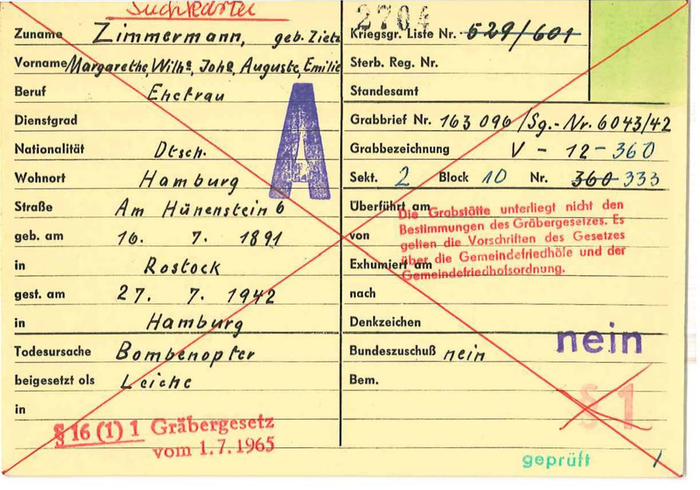 Suchkartei
Zuname Zimmermann, geb. Zietz
Vorname Margarethe, Wilhᵃ, Johᵃ, Auguste, Emilie
Beruf Ehefrau
Dienstgrad
Nationalität Dtsch.
Wohnort Hamburg
Straße Am Hünenstein 6
geb. am 16. 7. 1891
in Rostock
gest. am 27. 7. 1942
in Hamburg
Todesursache Bombenopfer
beigesetzt als Leiche
in
§ 16 (1) 1 Gräbergesetz
vom 1.7.1965
A
2704
Kriegsgr. Liste Nr. 529/601
Sterb. Reg. Nr.
Standesamt
Grabbrief Nr. 163 096/Sg.-Nr. 6043/42
Grabbezeichnung V - 12 - 360
Sekt. 2 Block 10 Nr. 360 333
Überführt am
von
Exhumiert am
nach
Die Grabstätte unterliegt nicht den
Bestimmungen des Gräbergesetzes. Es
gelten die Vorschriften des Gesetzes
über die Gemeindefriedhöfe und der
Gemeindefriedhofsordnung.
Denkzeichen
nein
Bundeszuschuß nein
Bem.
§ 1
geprüft